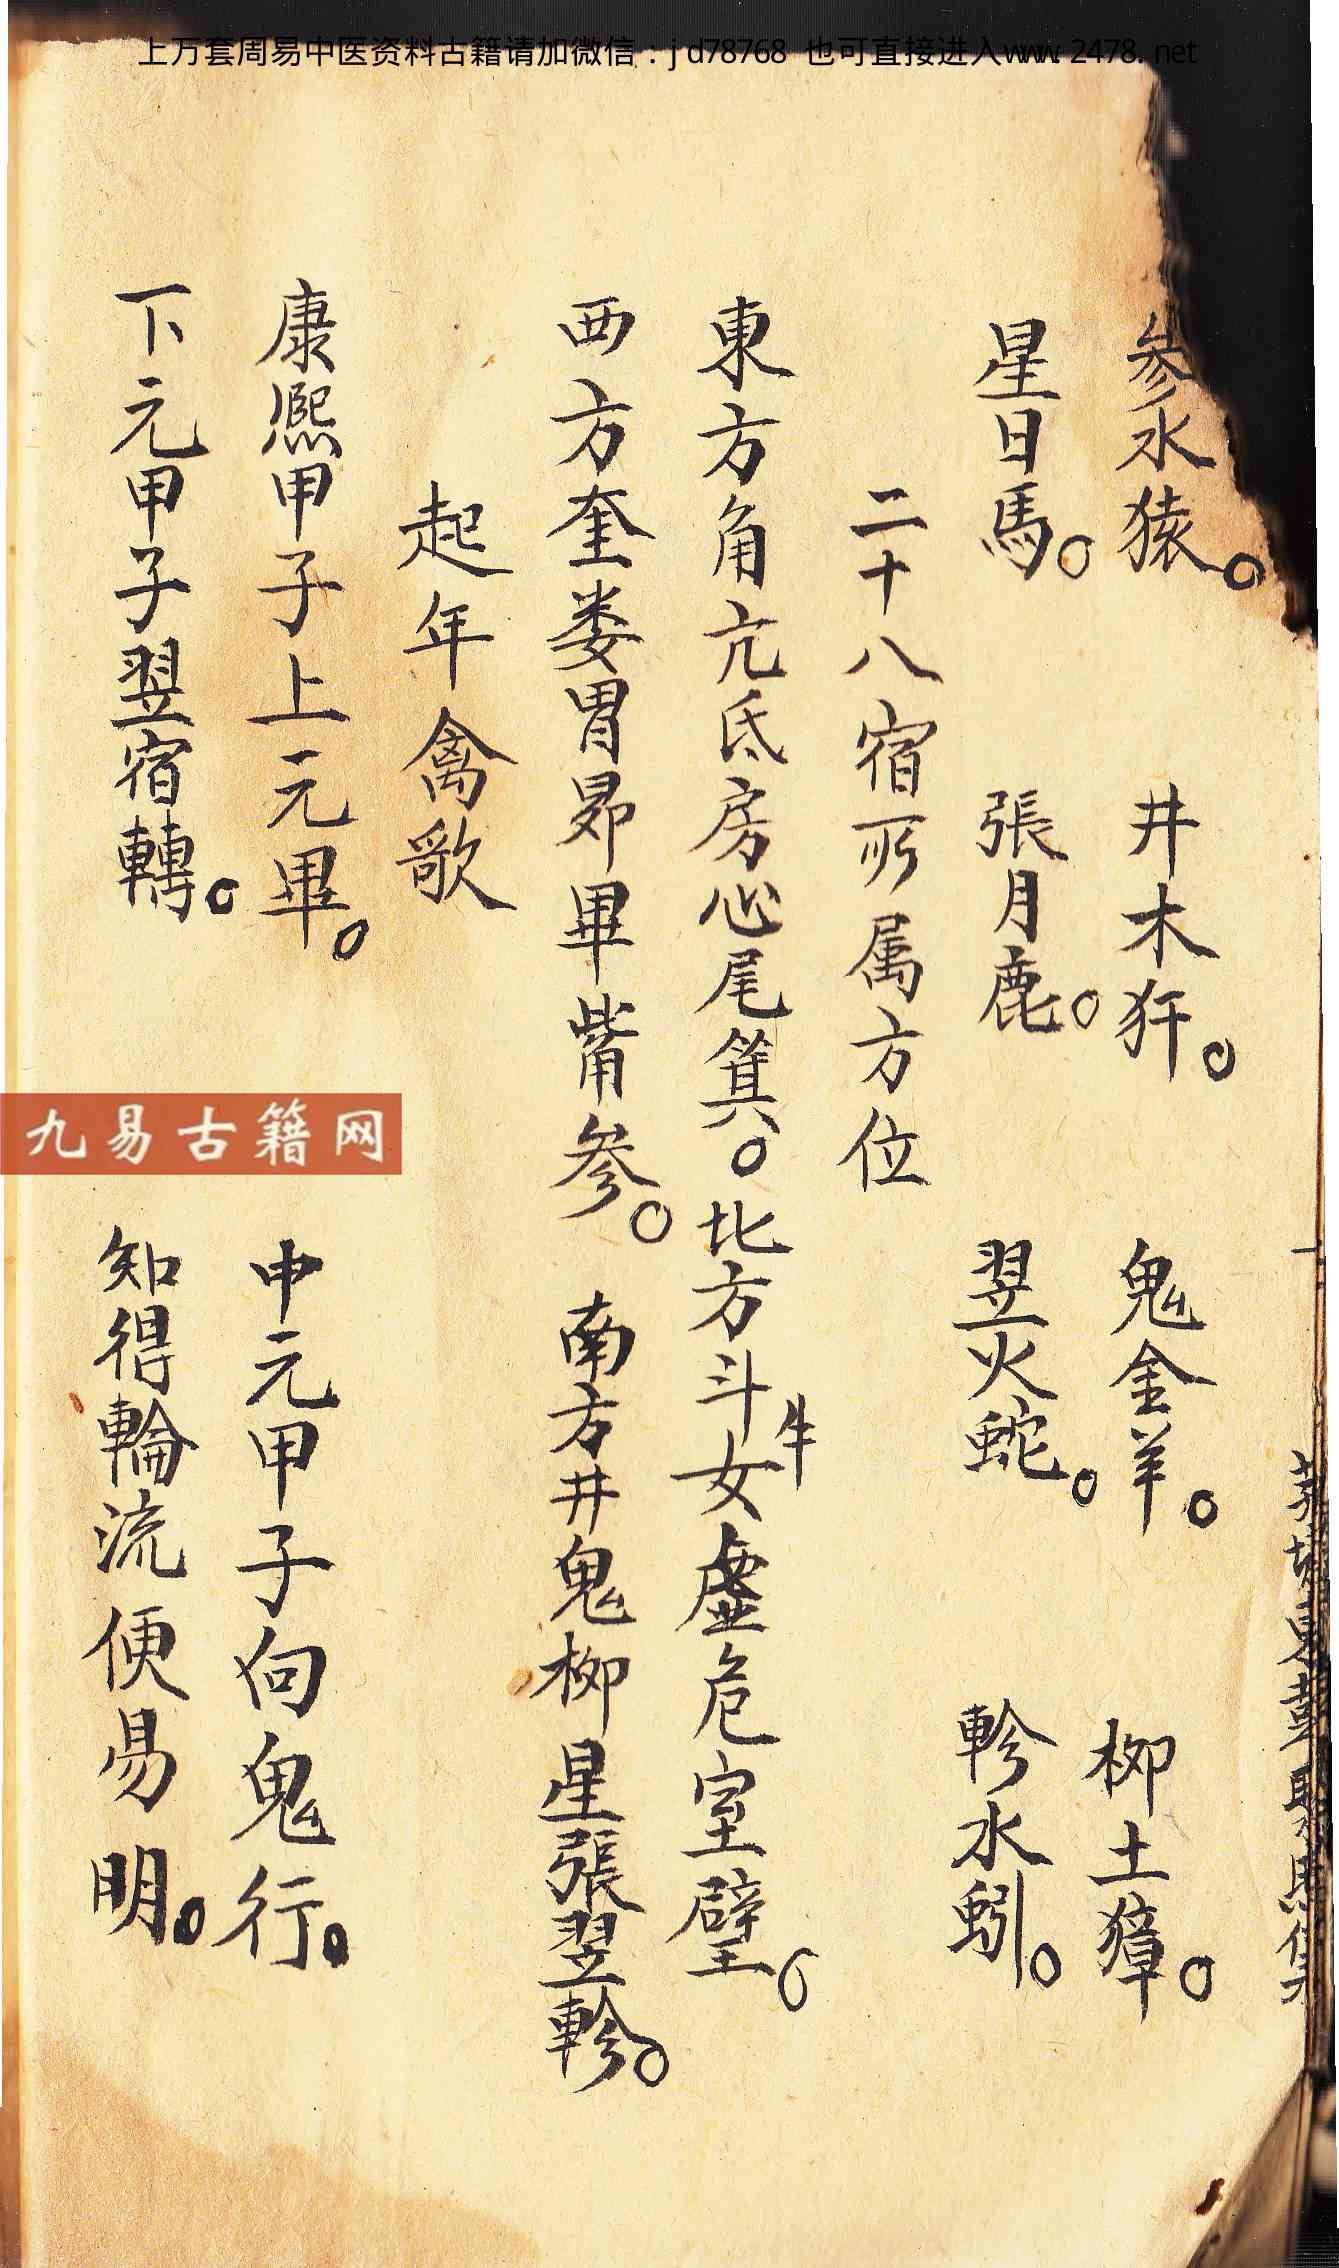 上万套周易中医资料古籍请加微信：jd78768 也可直接进入www.2478.net
參水猿。 井木犴。 鬼金羊。 柳土獐。
星日馬。 張月鹿。 翌火蛇。 軫水蚓。
二十八宿所属方位
東方角亢氐房心尾箕。北方斗牛女虛危室壁。
西方奎娄胃昴畢觜參。 南方井鬼柳星張翌軫。
起年禽歌
康熙甲子上元畢。 中元甲子向鬼行。
下元甲子翌宿轉。 知得輪流便易明。
九易古籍网